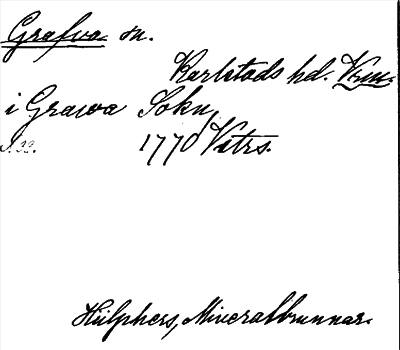 Grafva sn.
Karlstads hd. Vrm.
i Grawa Sokn,
S. 33. 1770 Vatrs.
Hülphers, Mineralbrunnar.